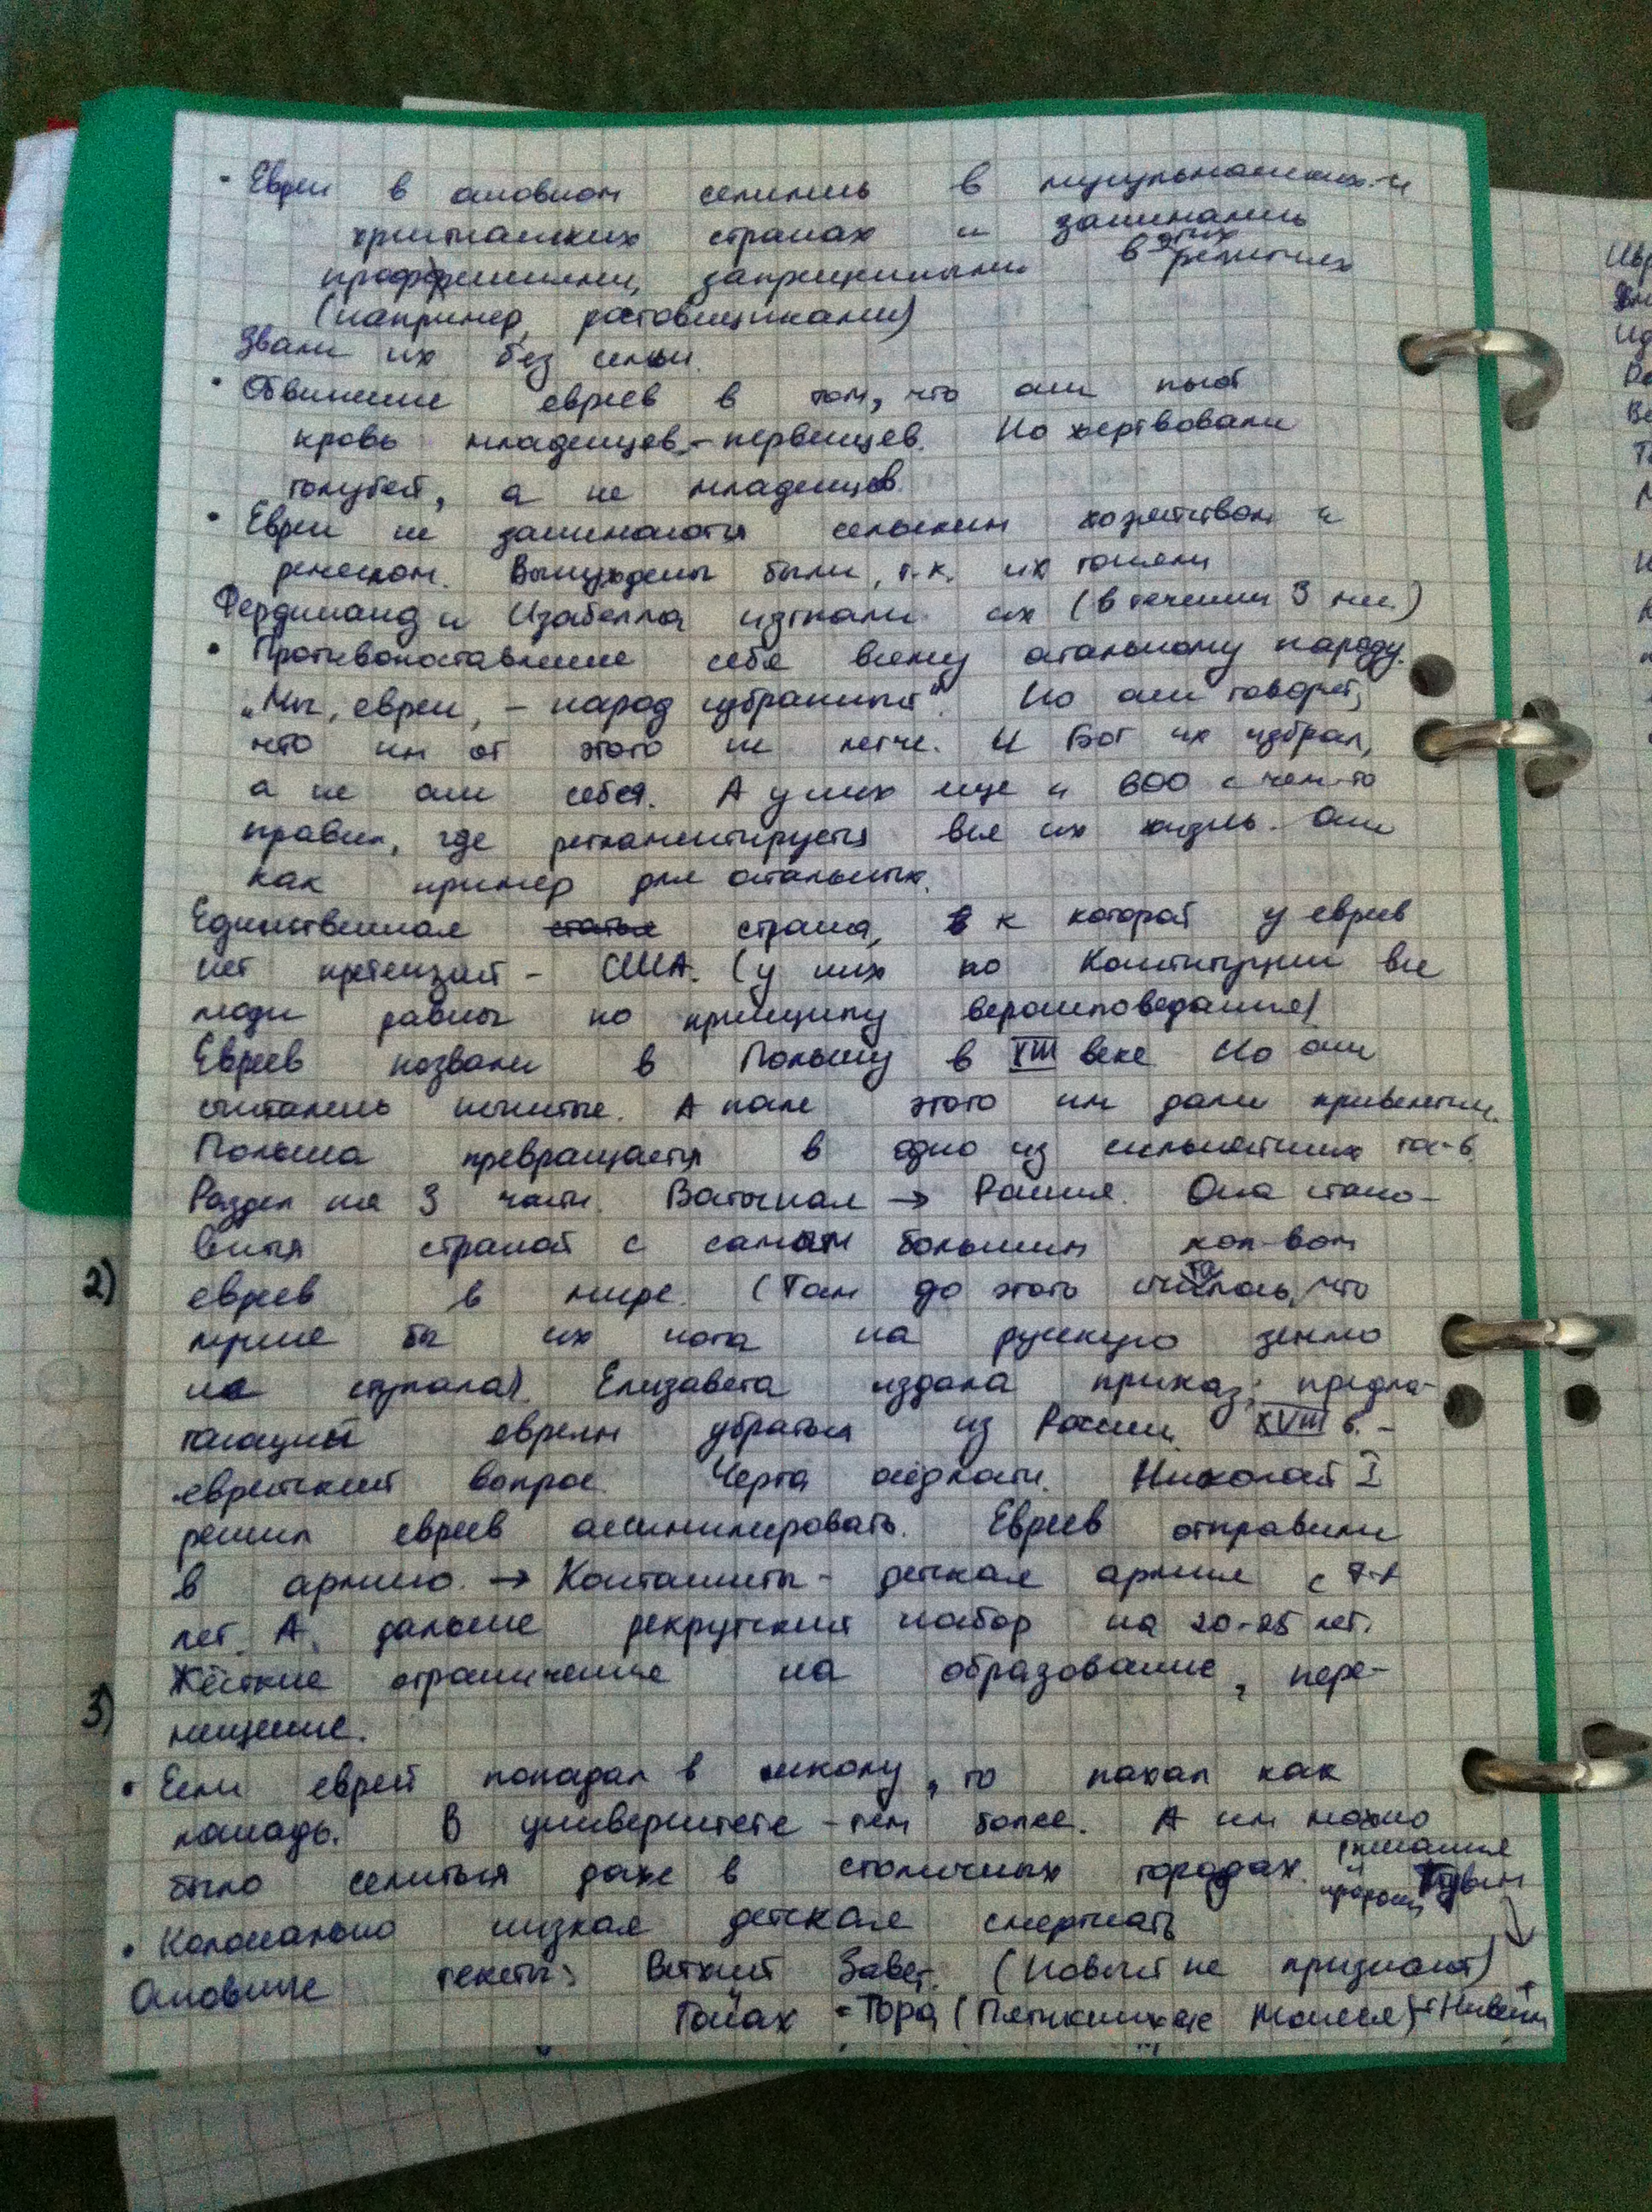 • Евреи в основном селились в мусульманских и
христианских странах и занимались
проффесиями, запрещенными в этих религиях
(например, ростовщиками)
Звали их без семьи.
• Обвинение евреев в том, что они пьют
кровь младенцев-первенцев. Но жертвовали
голубей, а не младенцев.
• Евреи не занимаются сельским хозяйством и
ремеслом. Вынуждены были, т.к. их гоняли
Фердинанд и Изабелла изгнали их (в течении 3 мес.)
• Противопоставление себя всему остальному народу.
„Мы, евреи, - народ избранный". Но они говорят,
что им от этого не легче. И Бог их избрал,
а не они себя. А у них еще и 600 с чем-то
правил, где регламентируется вся их жизнь. Они
как пример для остальных.
Единственная статья страна, в к которой у евреев
нет претензий - США. (у них по Конституции все
люди равны по принципу вероисповедания)
Евреев позвали в Польшу в XIII веке Но они
считались нечистые. А после этого им дали привелегии.
Польша превращается в одно из сильнейших гос-в.
Раздел на 3 части. Восточная → Россия. Она стано-
вится страной с самым большим кол-вом
2) евреев в мире. (Там до этого считалось, что
лучше бы их нога на русскую землю
не ступала). Елизавета издала приказ, предла-
гающий евреям убраться из России. XVIII в. -
еврейский вопрос. Черта оседлости. Николай I
решил евреев ассимилировать. Евреев отправили
в армию. → Контанисты - детская армия с 7-
лет. А дальше рекрутский набор на 20-25 лет.
Жёсткие ограничение на образование, пере-
3) мещение.
• Если еврей попадал в школу, то пахал как
лошадь. В университете - тем более. А им можно
было селиться даже в столичных городах.
писания
пророки
• Колоссально низкая детская смертность
Основные тексты: Ветхий Завет. (Новый не признают)
Танах = Тора (Пятикнижие Моисея) +